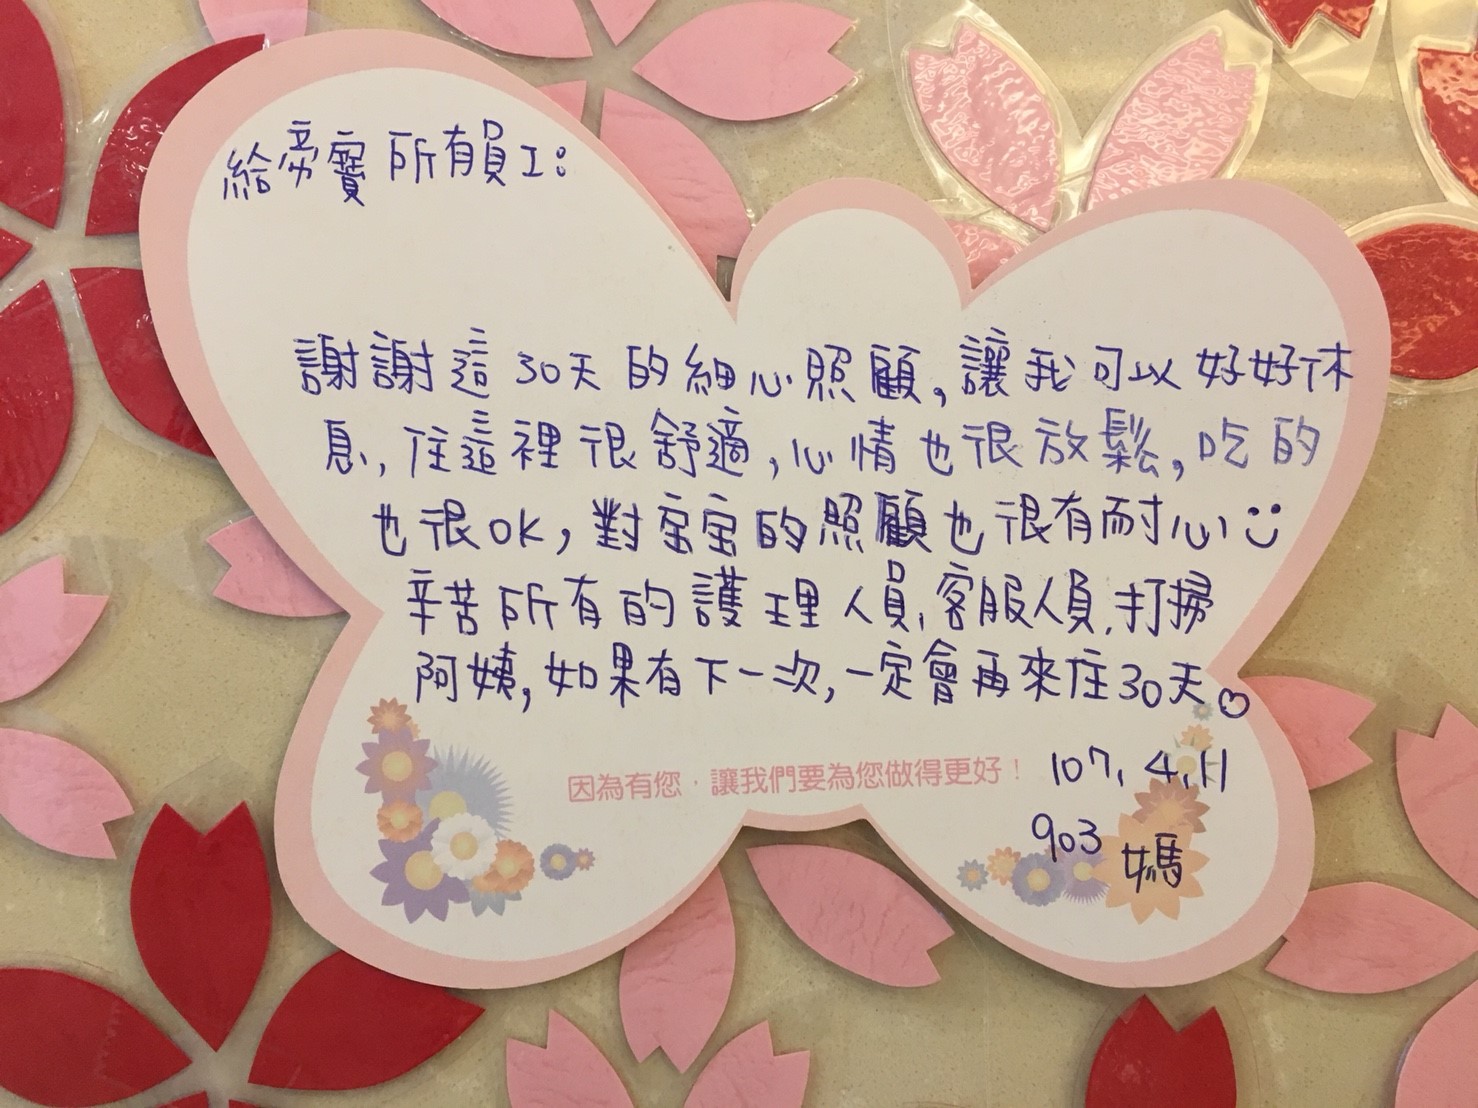 給帝寶所有員工:
謝謝這30天的細心照顧,讓我可以好好休
息,住這裡很舒適,心情也很放鬆,吃的
也很OK,對宝宝的照顧也很有耐心
辛苦所有的護理人員,客服人員,打掃
阿姨,如果有下一次,一定會再來住30天。
因為有您,讓我們要為您做得更好!
107.4.11
903 媽